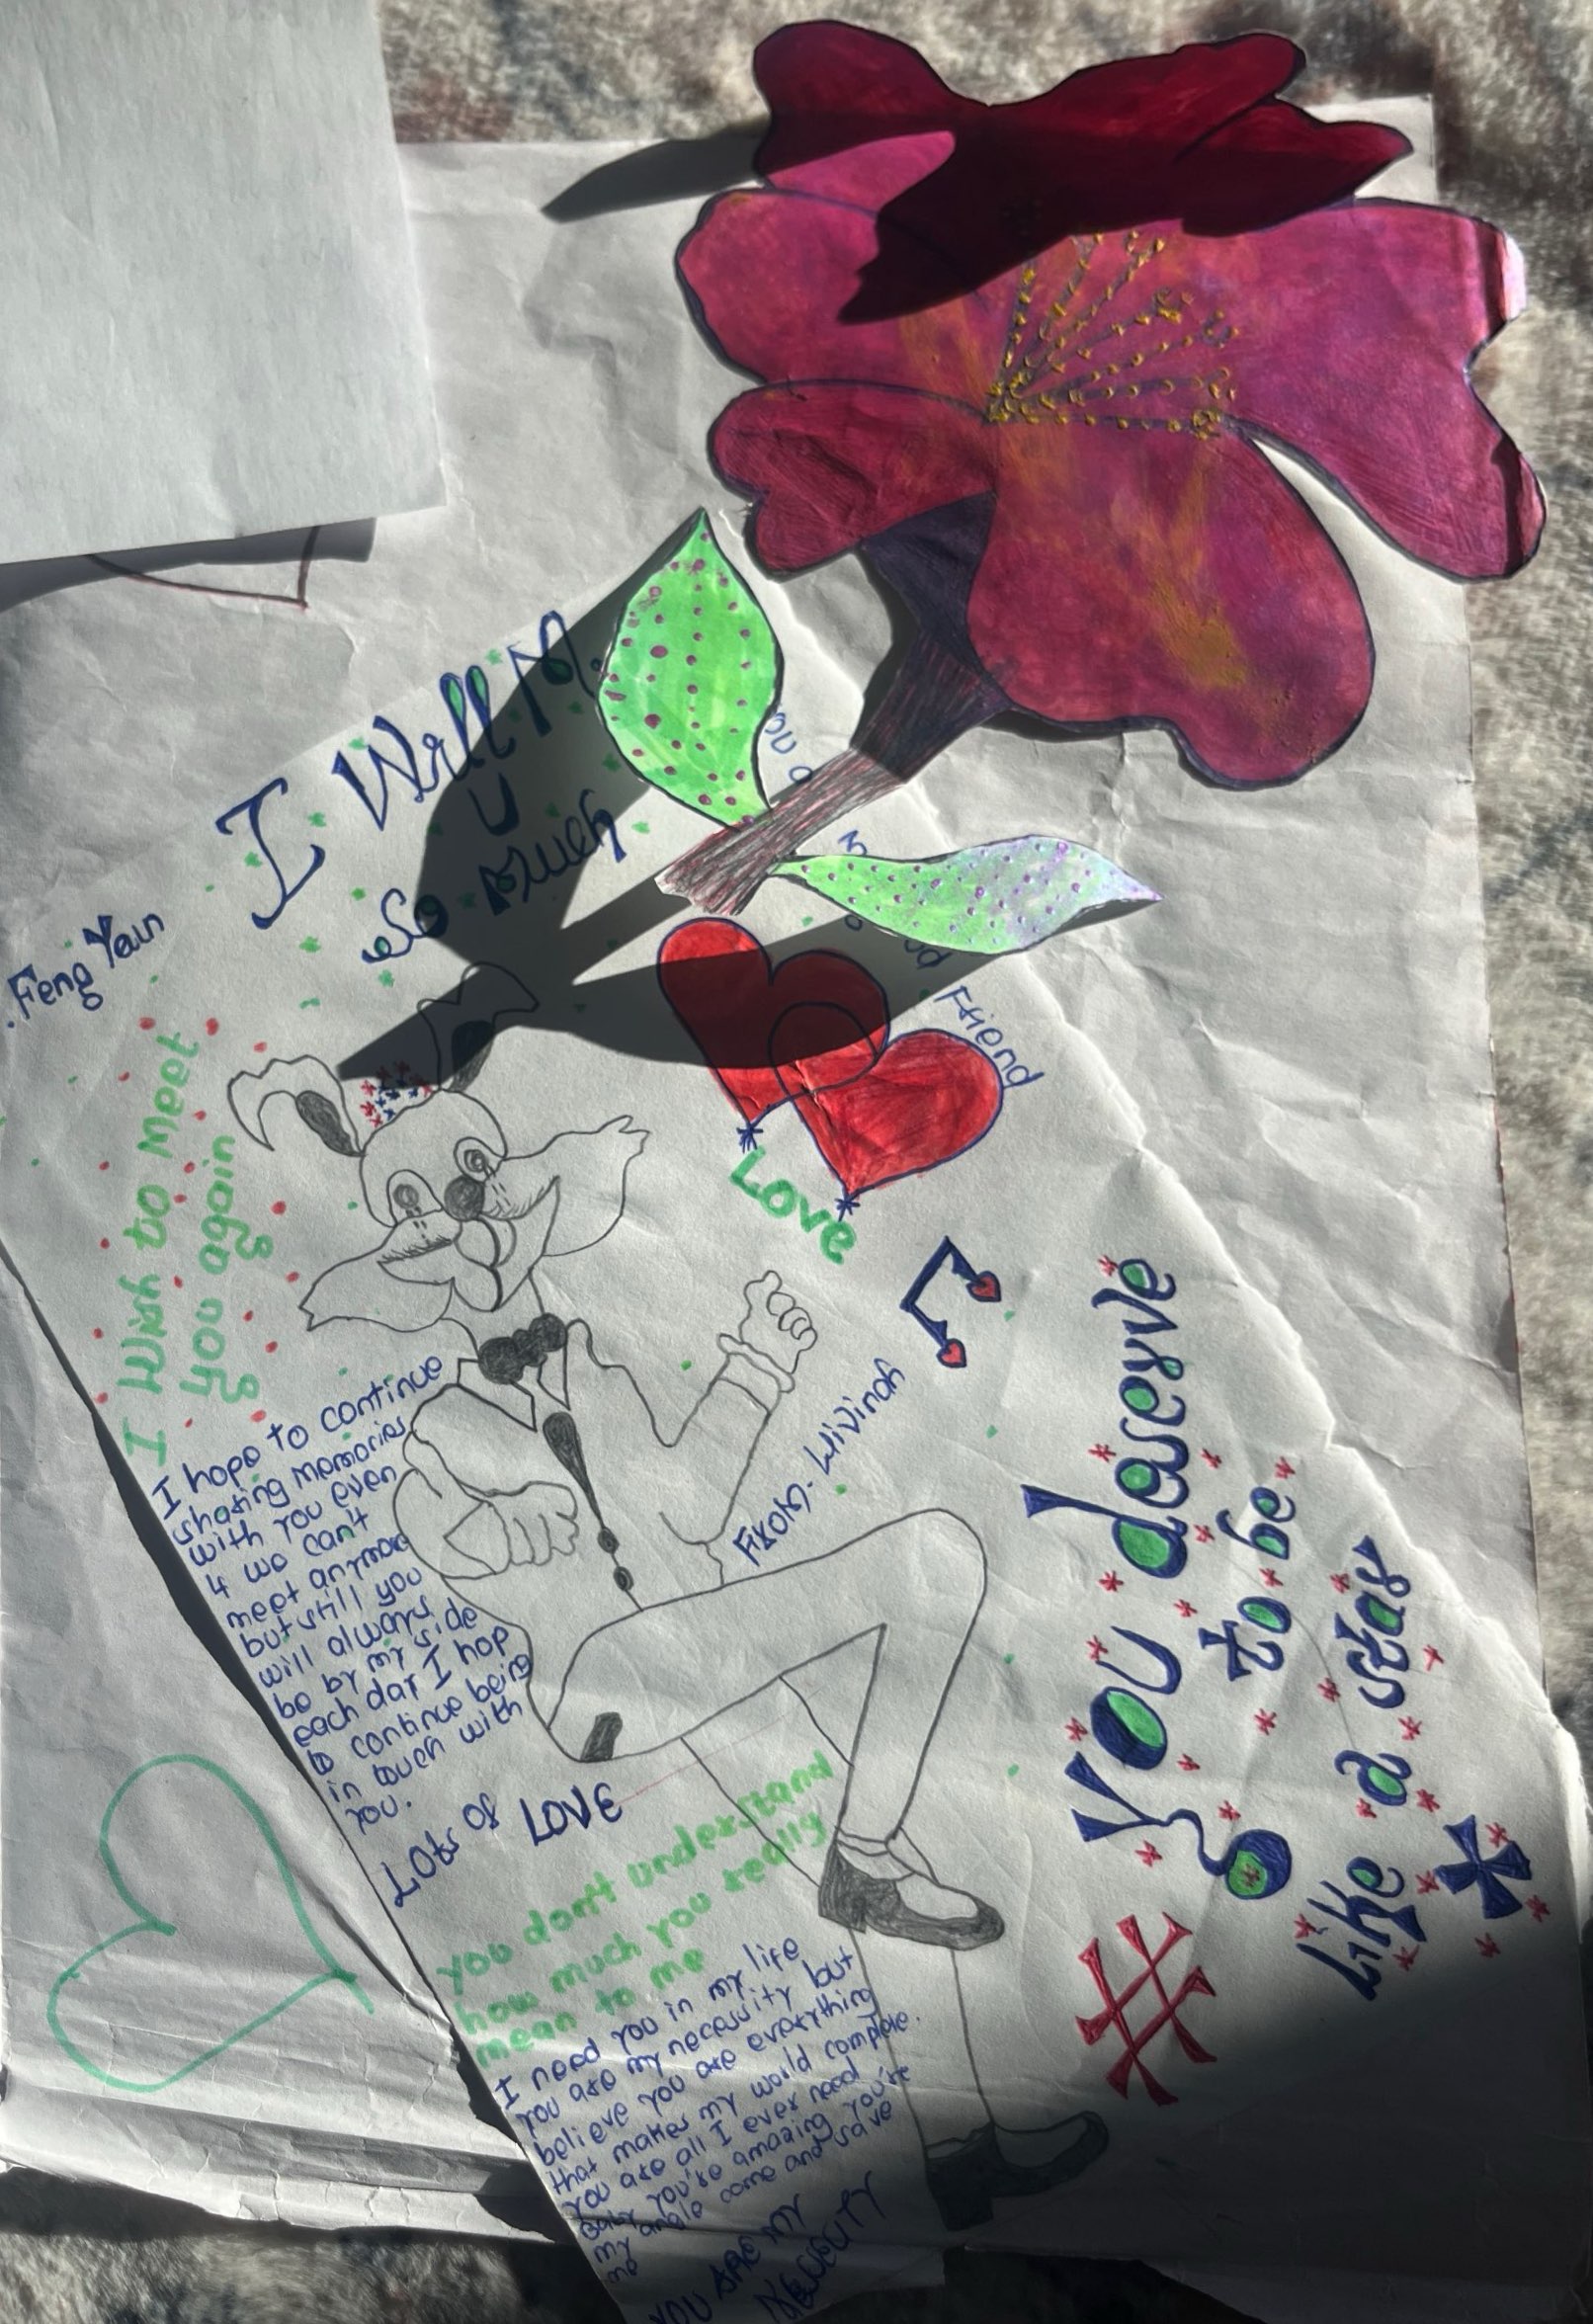 I Will M
U
So much
.Feng Yaun
I Wish to Meet
you again
ou a
Friend
Love
I hope to continue
sharing memories
with you even
4 we can't
meet anymore
but still you
will always
be by my side
each day I hop
to continue being
in touch with
you.
Lots of
LOVE
From- Wivinah
You deserve
to be
Like a star
you don't understand
how much you really
mean to me
I need you in my life
you are my necessity but
believe you are everything
that makes my world complete.
you are all I ever need
Baby you're amazing you're
my angle come and save
me
YOU ARE MY